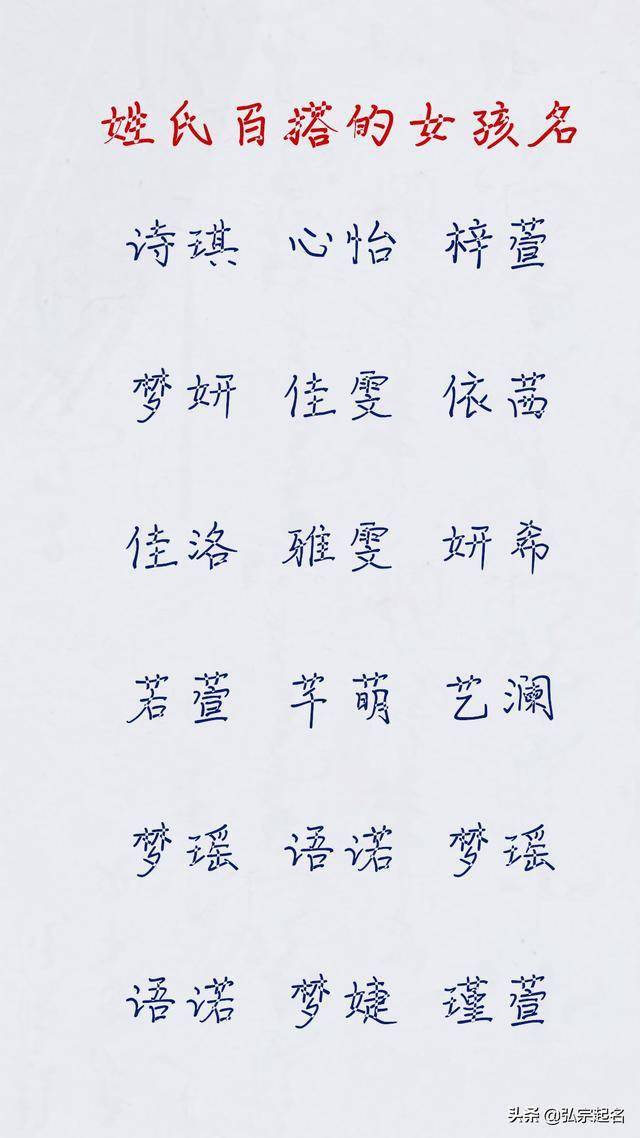 姓氏百搭的女孩名
诗琪 心怡 梓萱
梦妍 佳雯 依茜
佳洛 雅雯 妍希
若萱 芊萌 艺澜
梦瑶 语诺 梦瑶
语诺 梦婕 瑾萱
头条 @弘宗起名